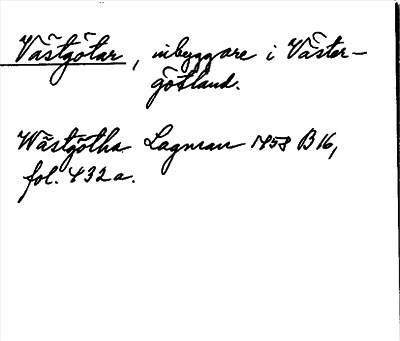 Västgötar, inbyggare i Väster-
götland.
Wästgötha Lagman 1458 B 16,
fol. 432 a.